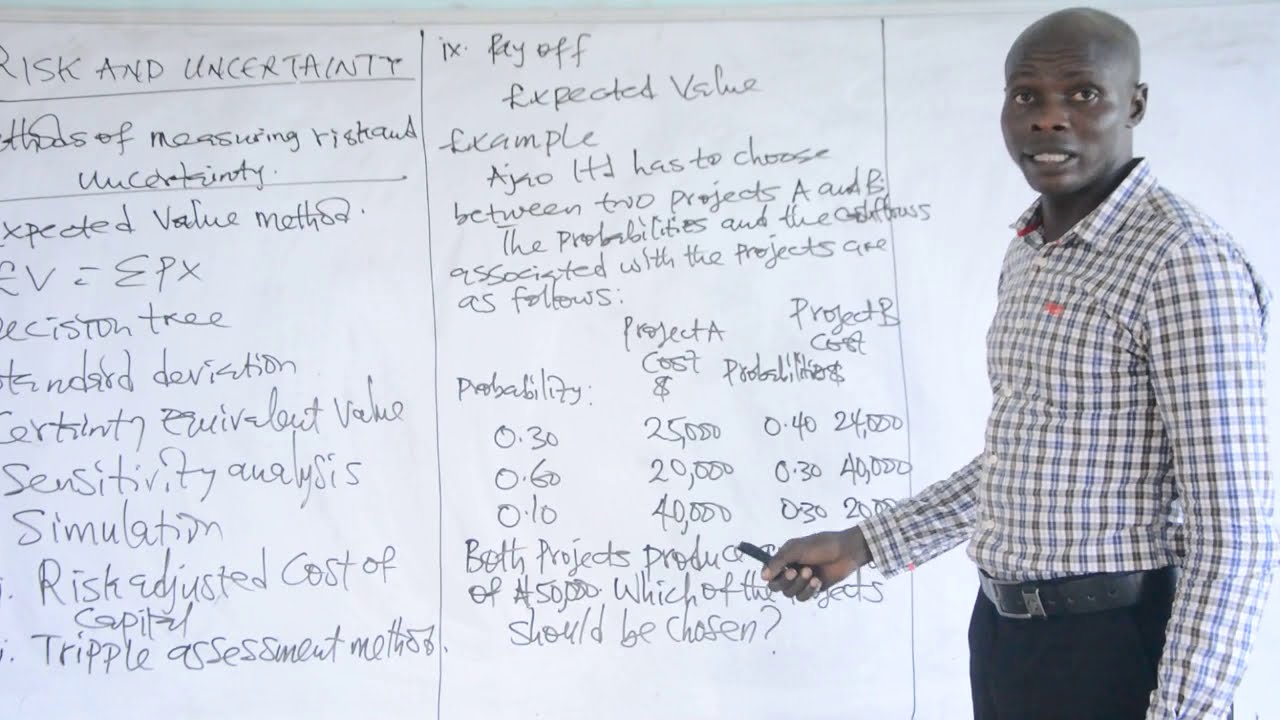 RISK AND UNCERTAINTY
ethods of measuring risk and
uncertainty.
xpected Value method.
EV = ΣPX
ecision tree
tandard deviation
Certainty Equivalent Value
Sensitivity analysis
Simulation
Risk adjusted Cost of
Capital
Tripple assessment method.
ix. Pay off
Expected Value
Example
Ajao Ltd has to choose
between two projects A and B.
The Probabilities and the Cashflows
associated with the projects are
as follows:
Project A Project B
Cost Cost
Probability: $ Probabilities $
0.30 25,000 0.40 24,000
0.60 20,000 0.30 40,000
0.10 40,000 0.30 20,00
Both Projects produce
of ₦50,000. Which of the Projects
should be chosen?